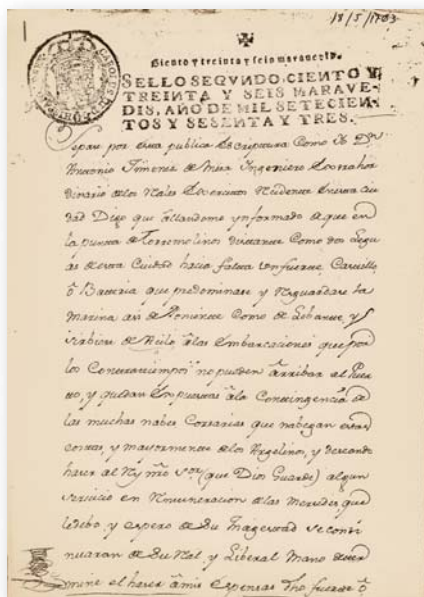 18/5/1763
Ciento y treinta y seis maravedis.
SELLO SEGVNDO, CIENTO Y
TREINTA Y SEIS MARAVE-
DIS, AÑO DE MIL SETECIEN-
TOS Y SESENTA Y TRES.
Sepase por esta publica Escriptura Como Yo Dn
Antonio Jimenez de Mesa Ingeniero Extrahor
dinario de los Rales Exercitos Recidente en esta ciu
dad Digo que allandome ynformado de que en
la punta de Torremolinos distante Como dos legu
as de esta Ciudad hacia falta un fuerte Castillo
o Bateria que predominase y Resguardase la
Marina asi de Poniente Como de Lebante, y
sirbiese de Asilo a las Embarcaciones que por
los Contratiempos no pueden arribar al Puer
to, y quedan Expuestas a la Contingencia de
las muchas nabes Corsarias que nabegan estas
costas, y mayormente de los Argelinos, y deseando
hacer al Rey nro Sor (que Dios Guarde) algun
servicio en Remuneracion de las Mercedes que
le debo, y espero de Su Magestad se conti
nuaran de Su Ral y Liberal Mano deter
mine el hacer a mis Expensas dho fuerte o